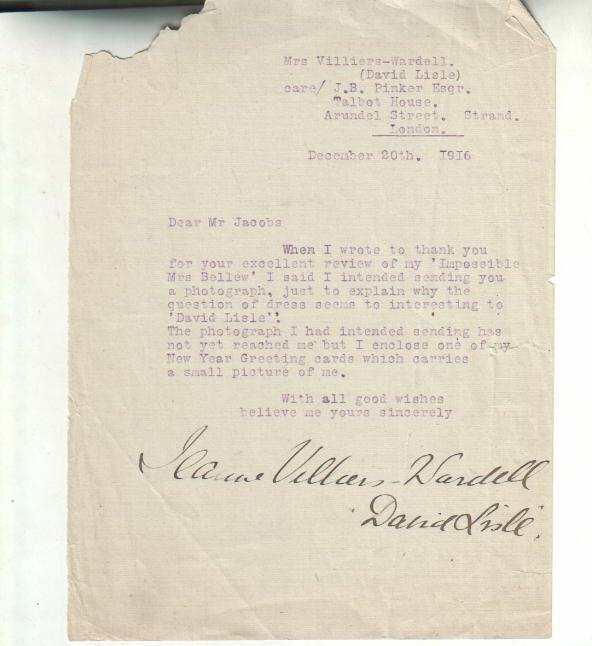 Mrs Villiers-Wardell.
(David Lisle)
care/ J.B. Pinker Esqr.
Talbot House.
Arundel Street. Strand.
London.
December 20th. 1916
Dear Mr Jacobs
When I wrote to thank you
for your excellent review of my 'Impossible
Mrs Bellew' I said I intended sending you
a photograph, just to explain why the
question of dress seems to interesting to
'David Lisle'!
The photograph I had intended sending has
not yet reached me but I enclose one of my
New Year Greeting cards which carries
a small picture of me.
With all good wishes
believe me yours sincerely
Jeanne Villiers-Wardell
David Lisle.